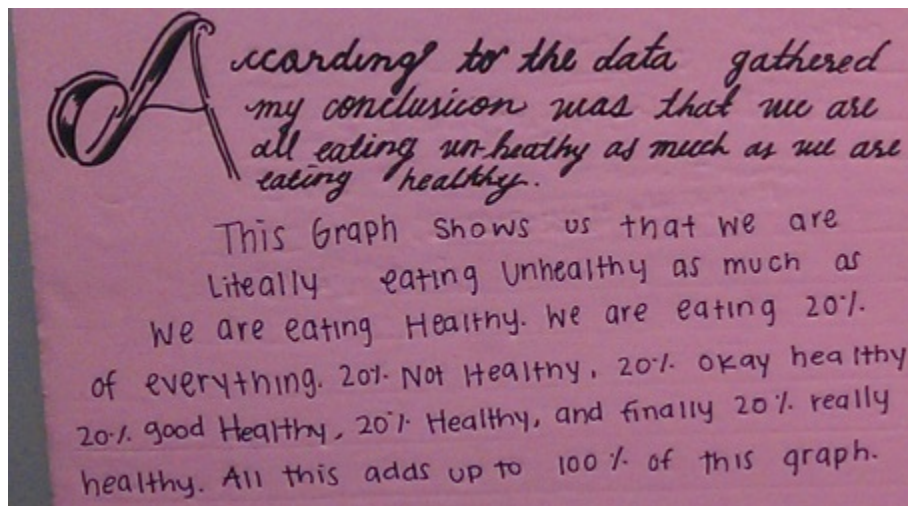 According to the data gathered
my conclusicon was that we are
all eating un-heathy as much as we are
eating healthy.
This Graph Shows us that we are
Liteally eating Unhealthy as much as
We are eating Healthy. We are eating 20%
of everything. 20% Not Healthy, 20% okay healthy
20% good Healthy, 20% Healthy, and finally 20% really
healthy. All this adds up to 100% of this graph.